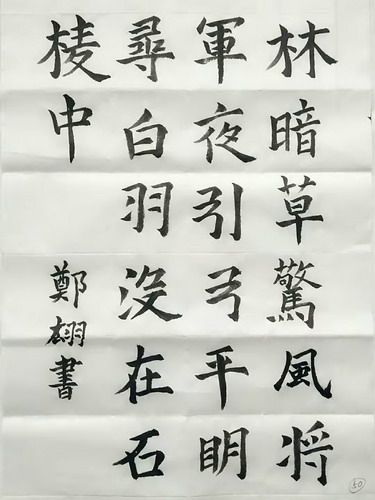 林暗草驚風将
軍夜引弓平明
尋白羽没在石
棱中
鄭翃書
50